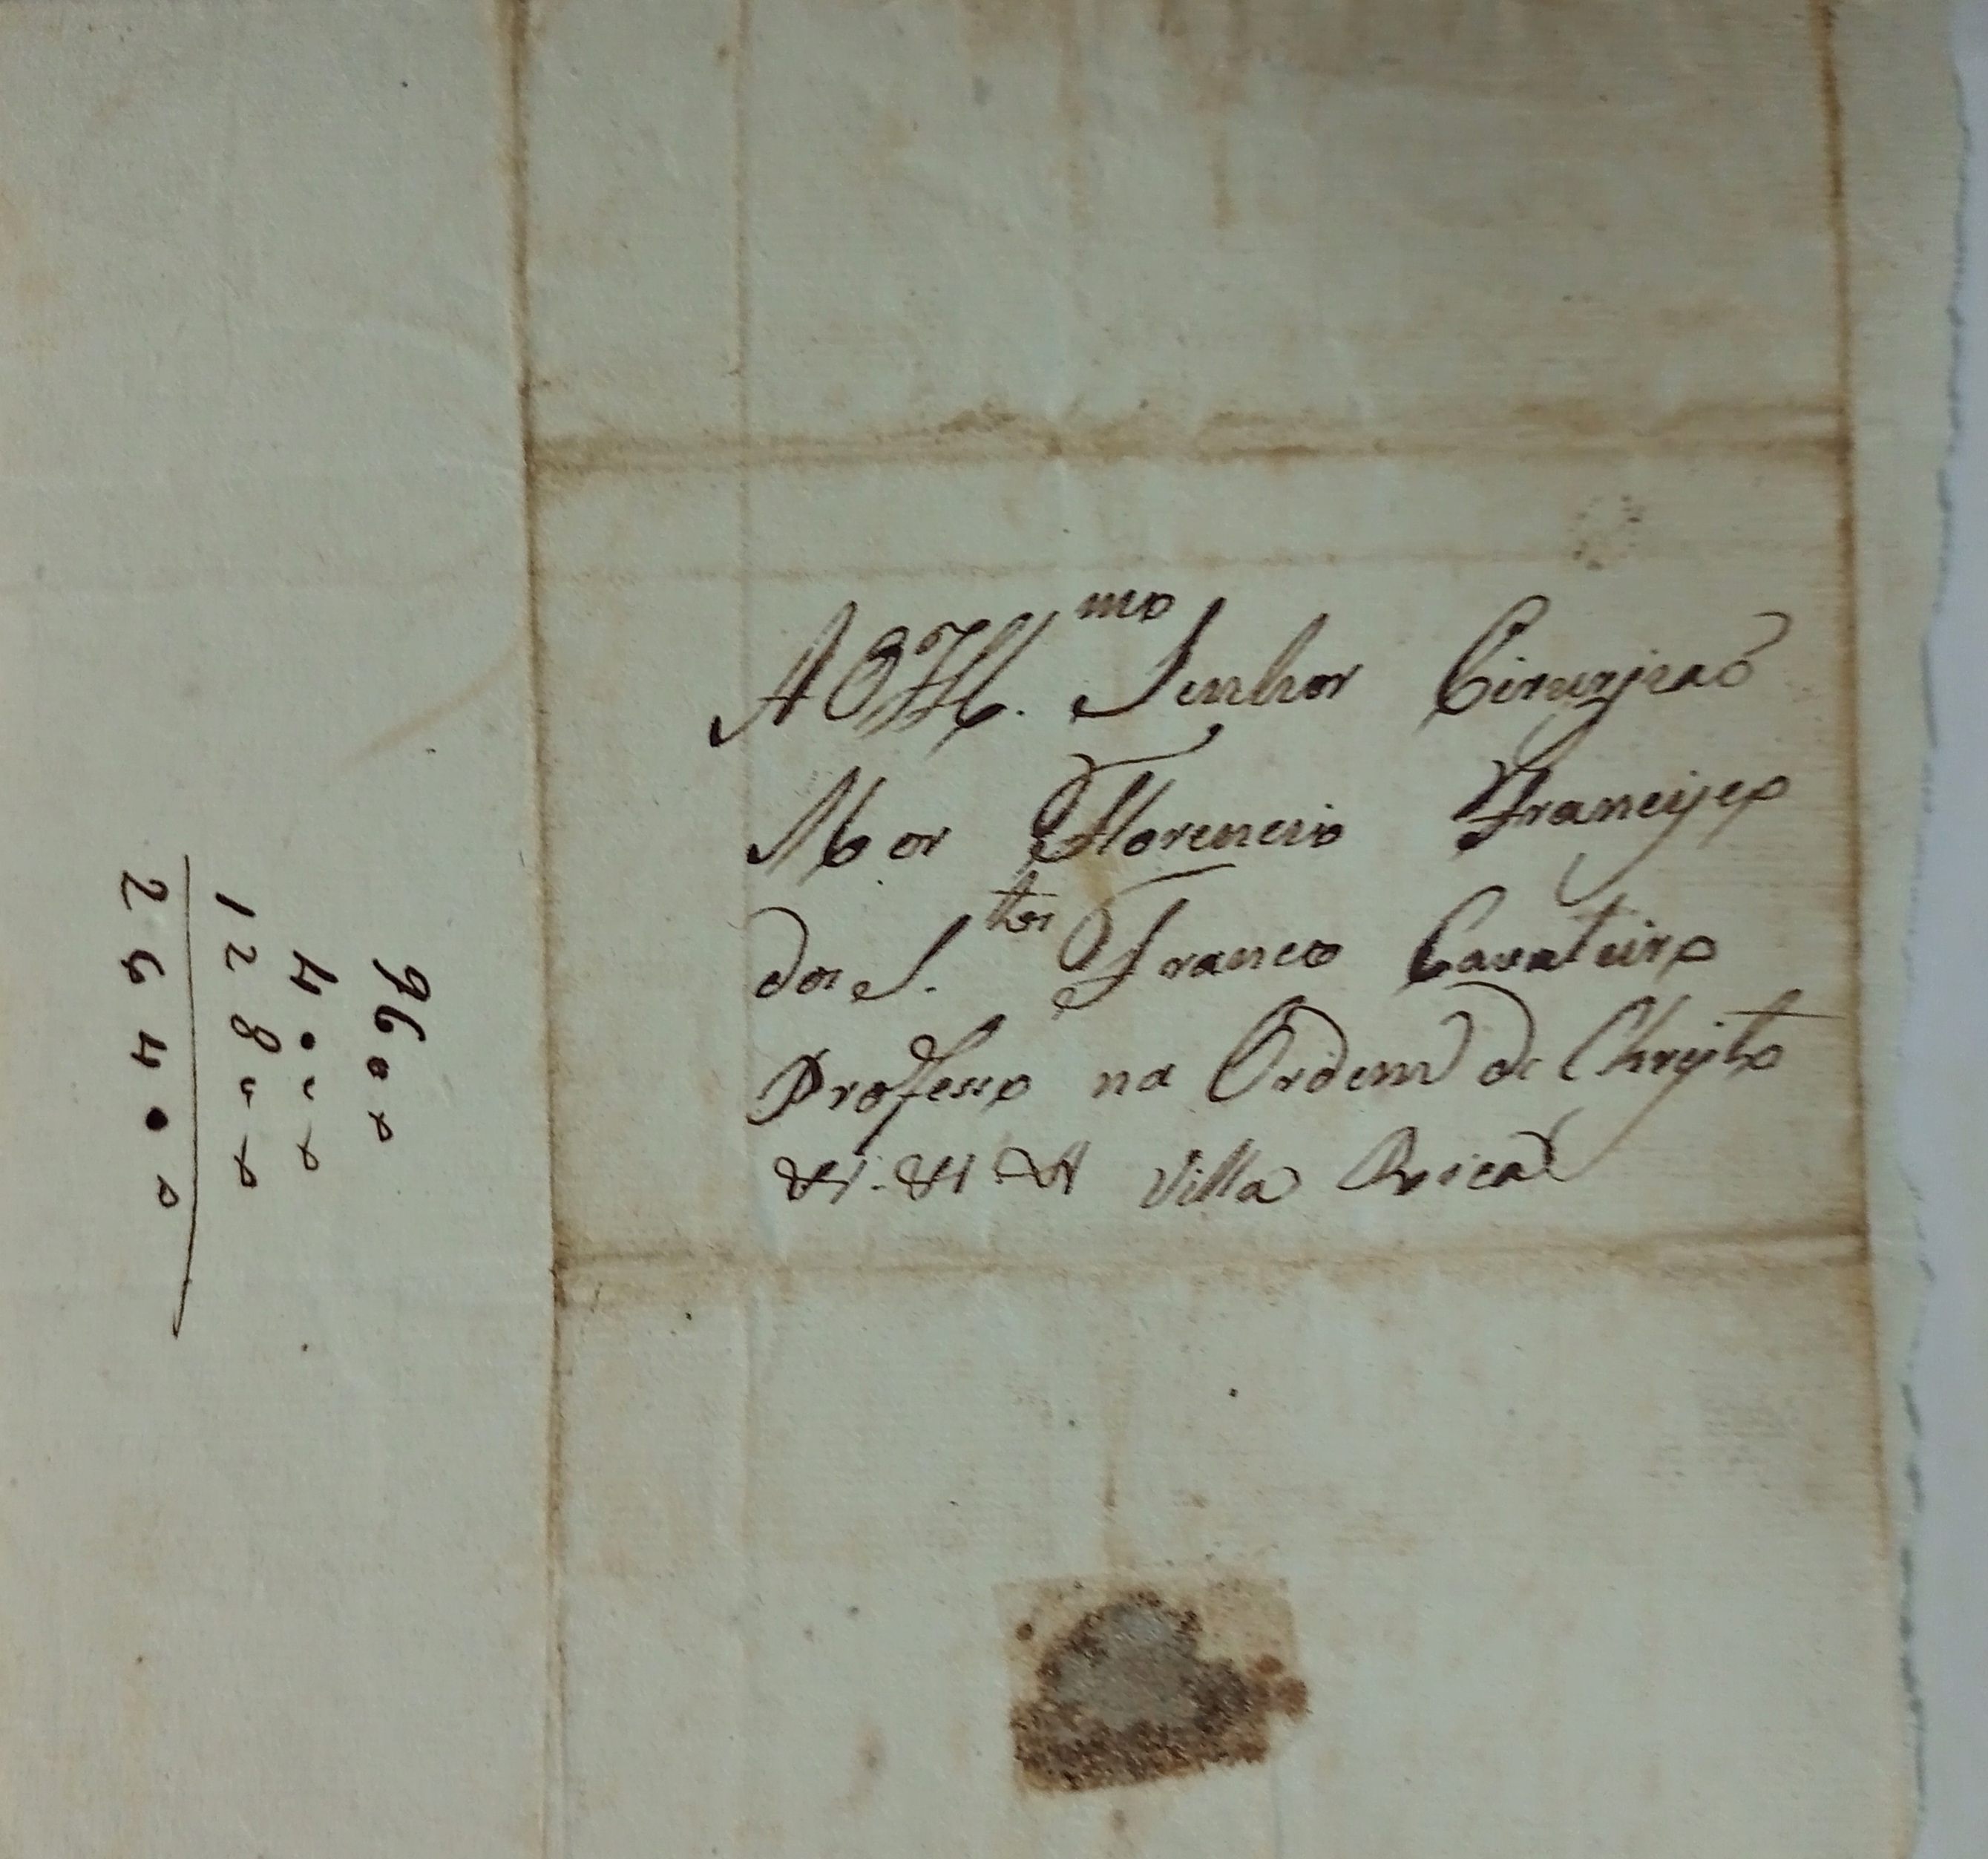 AO Ill.mo Senhor Cirurjiaõ
Mor Florencio Francisco
dos S.tos Franco Cavaleiro
Professo na Ordem de Christo
&. &. & Villa Rica
9600
4000
12800
26400